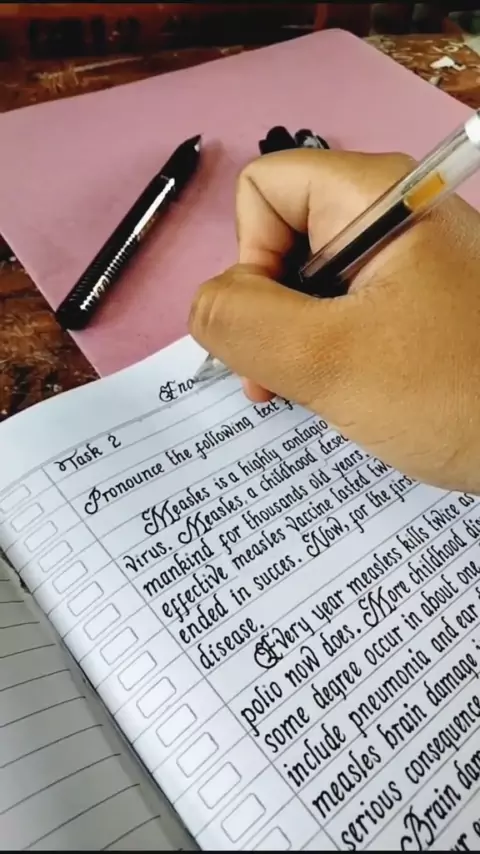 Eng
Task 2
Pronounce the following text
Measles is a highly contagio
virus. Measles, a childhood
mankind for thousands old years.
effective measles vaccine lasted
ended in succes. Now, for the firs
disease.
Every year measless kills twice as
polio now does. More childhood dis
some degree occur in about one
include pneumonia and ear
measles brain damage
serious consequence
Brain dam